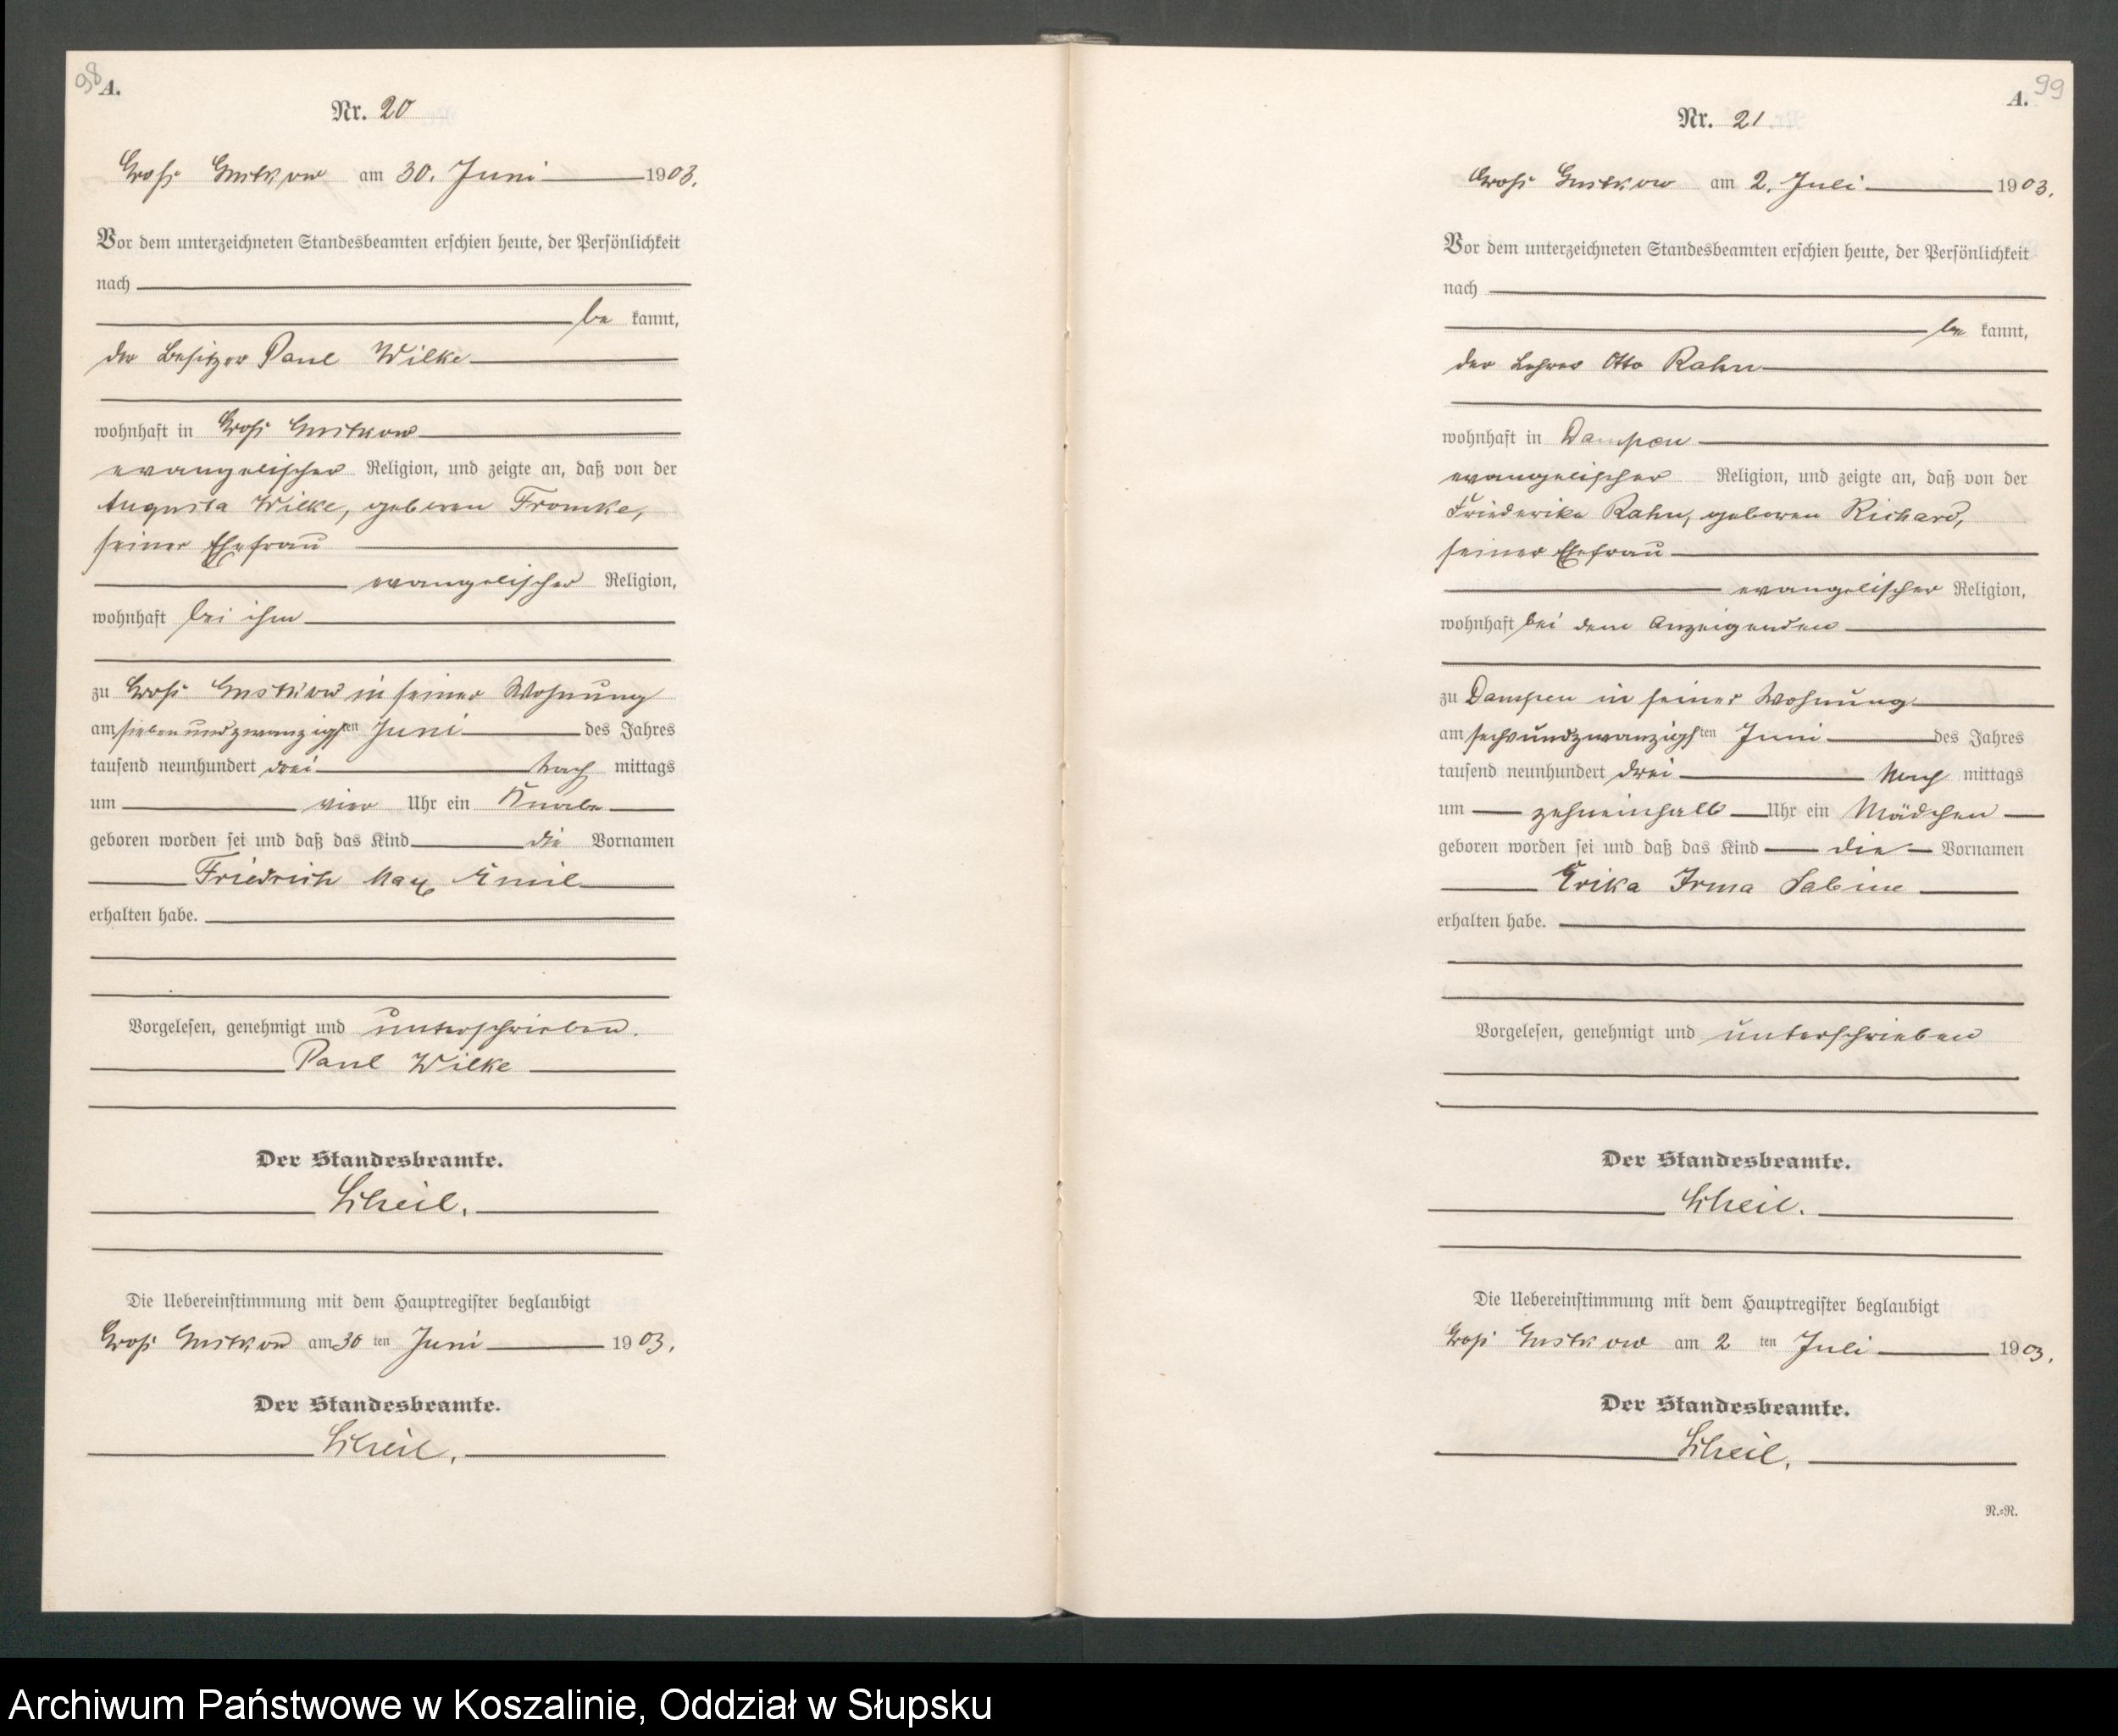 98
A.
Nr. 20
Groß Gustkow am 30. Juni 1903.
Vor dem unterzeichneten Standesbeamten erschien heute, der Persönlichkeit
nach
be kannt,
der Besitzer Paul Wilke
wohnhaft in Groß Gustkow
evangelischer Religion, und zeigte an, daß von der
Augusta Wilke, geboren Fromke,
seiner Ehefrau
evangelischer Religion,
wohnhaft bei ihm
zu Groß Gustkow in seiner Wohnung
am siebenundzwanzigsten Juni des Jahres
tausend neunhundert drei Nach mittags
um vier Uhr ein Knabe
geboren worden sei und daß das Kind die Vornamen
Friedrich Max Emil
erhalten habe.
Vorgelesen, genehmigt und unterschrieben.
Paul Wilke
Der Standesbeamte.
Scheil.
Die Uebereinstimmung mit dem Hauptregister beglaubigt
Groß Gustkow am 30 ten Juni 1903.
Der Standesbeamte.
Scheil.
99
A.
Nr. 21
Groß Gustkow am 2. Juli 1903.
Vor dem unterzeichneten Standesbeamten erschien heute, der Persönlichkeit
nach
be kannt,
der Lehrer Otto Rahn
wohnhaft in Dampen
evangelischer Religion, und zeigte an, daß von der
Friederike Rahn, geboren Richard,
seiner Ehefrau
evangelischer Religion,
wohnhaft bei dem Anzeigenden
zu Dampen in seiner Wohnung
am sechsundzwanzigsten Juni des Jahres
tausend neunhundert drei Nach mittags
um zehneinhalb Uhr ein Mädchen
geboren worden sei und daß das Kind die Vornamen
Erika Irma Sabine
erhalten habe.
Vorgelesen, genehmigt und unterschrieben
Der Standesbeamte.
Scheil.
Die Uebereinstimmung mit dem Hauptregister beglaubigt
Groß Gustkow am 2 ten Juli 1903.
Der Standesbeamte.
Scheil.
N.=N.
Archiwum Państwowe w Koszalinie, Oddział w Słupsku